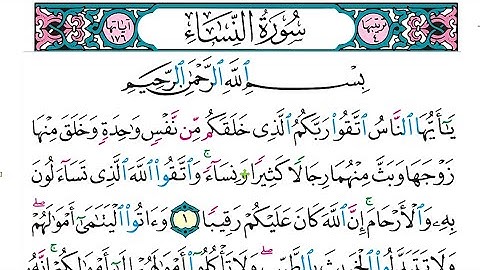 رتيبها ٤ سُورَةُ النِّسَاءِ آياتها ١٧٦
بِسْمِ ٱللَّهِ ٱلرَّحْمَٰنِ ٱلرَّحِيمِ
يَٰٓأَيُّهَا ٱلنَّاسُ ٱتَّقُوا۟ رَبَّكُمُ ٱلَّذِى خَلَقَكُم مِّن نَّفْسٍ وَٰحِدَةٍ وَخَلَقَ مِنْهَا
زَوْجَهَا وَبَثَّ مِنْهُمَا رِجَالًا كَثِيرًا وَنِسَآءً ۚ وَٱتَّقُوا۟ ٱللَّهَ ٱلَّذِى تَسَآءَلُونَ
بِهِۦ وَٱلْأَرْحَامَ ۚ إِنَّ ٱللَّهَ كَانَ عَلَيْكُمْ رَقِيبًا ١ وَءَاتُوا۟ ٱلْيَتَٰمَىٰٓ أَمْوَٰلَهُمْ ۖ
وَلَا تَتَبَدَّلُوا۟ ٱلْخَبِيثَ بِٱلطَّيِّبِ ۖ وَلَا تَأْكُلُوٓا۟ أَمْوَٰلَهُمْ إِلَىٰٓ أَمْوَٰلِكُمْ ۚ إِنَّهُۥ